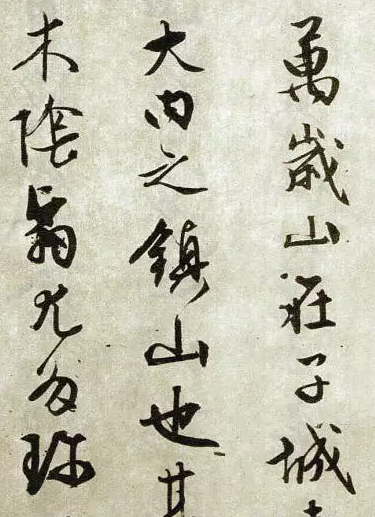 萬歲山在子城
大內之鎮山也其
木陰翳尤多珍